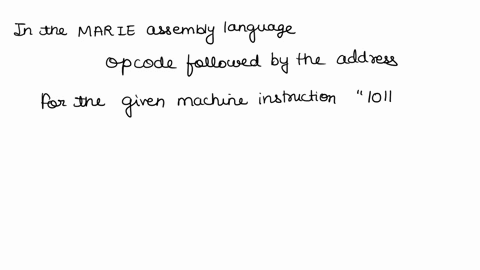 In the MARIE assembly language
opcode followed by the address
for the given machine instruction "1011